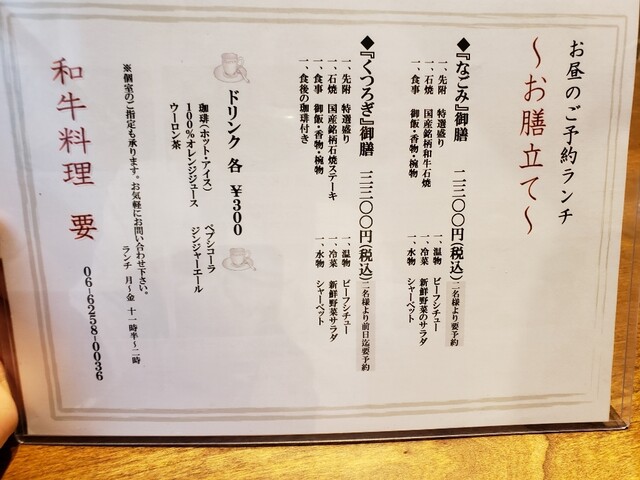 お昼のご予約ランチ
〜お膳立て〜
◆『なごみ』御膳 二二〇〇円(税込) 二名様より要予約
一、先附 特選盛り 一、温物 ビーフシチュー
一、石焼 国産銘柄和牛石焼 一、冷菜 新鮮野菜のサラダ
一、食事 御飯・香物・椀物 一、水物 シャーベット
◆『くつろぎ』御膳 三三〇〇円(税込) 二名様より前日迄要予約
一、先附 特選盛り 一、温物 ビーフシチュー
一、石焼 国産銘柄石焼ステーキ 一、冷菜 新鮮野菜のサラダ
一、食事 御飯・香物・椀物 一、水物 シャーベット
一、食後の珈琲付き
ドリンク 各 ¥300
珈琲(ホット・アイス) ペプシコーラ
100%オレンジジュース ジンジャーエール
ウーロン茶
※個室のご指定も承ります。お気軽にお問い合わせ下さい。
ランチ 月〜金 十一時半〜二時
和牛料理 要
06-6258-0036